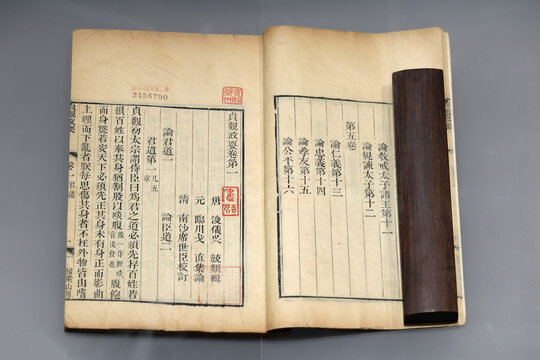 論教戒太子諸王第十一
論規諫太子第十二
第五卷
論仁義第十三
論忠義第十四
論孝友第十五
論公平第十六
貞觀政要卷第一
唐 吳兢類輯
元 臨川戈直集論
清 南沙席世臣校訂
論君道一 論臣道二
君道第一 凡五章
貞觀初太宗謂侍臣曰爲君之道必須先存百姓若
損百姓以奉其身猶割股以啖腹腹飽
而身斃若安天下必須先正其身未有身正而影曲
上理而下亂者朕每思傷其身者不在外物皆由嗜
貞觀政要
卷一 君道
掃葉山房
2556790